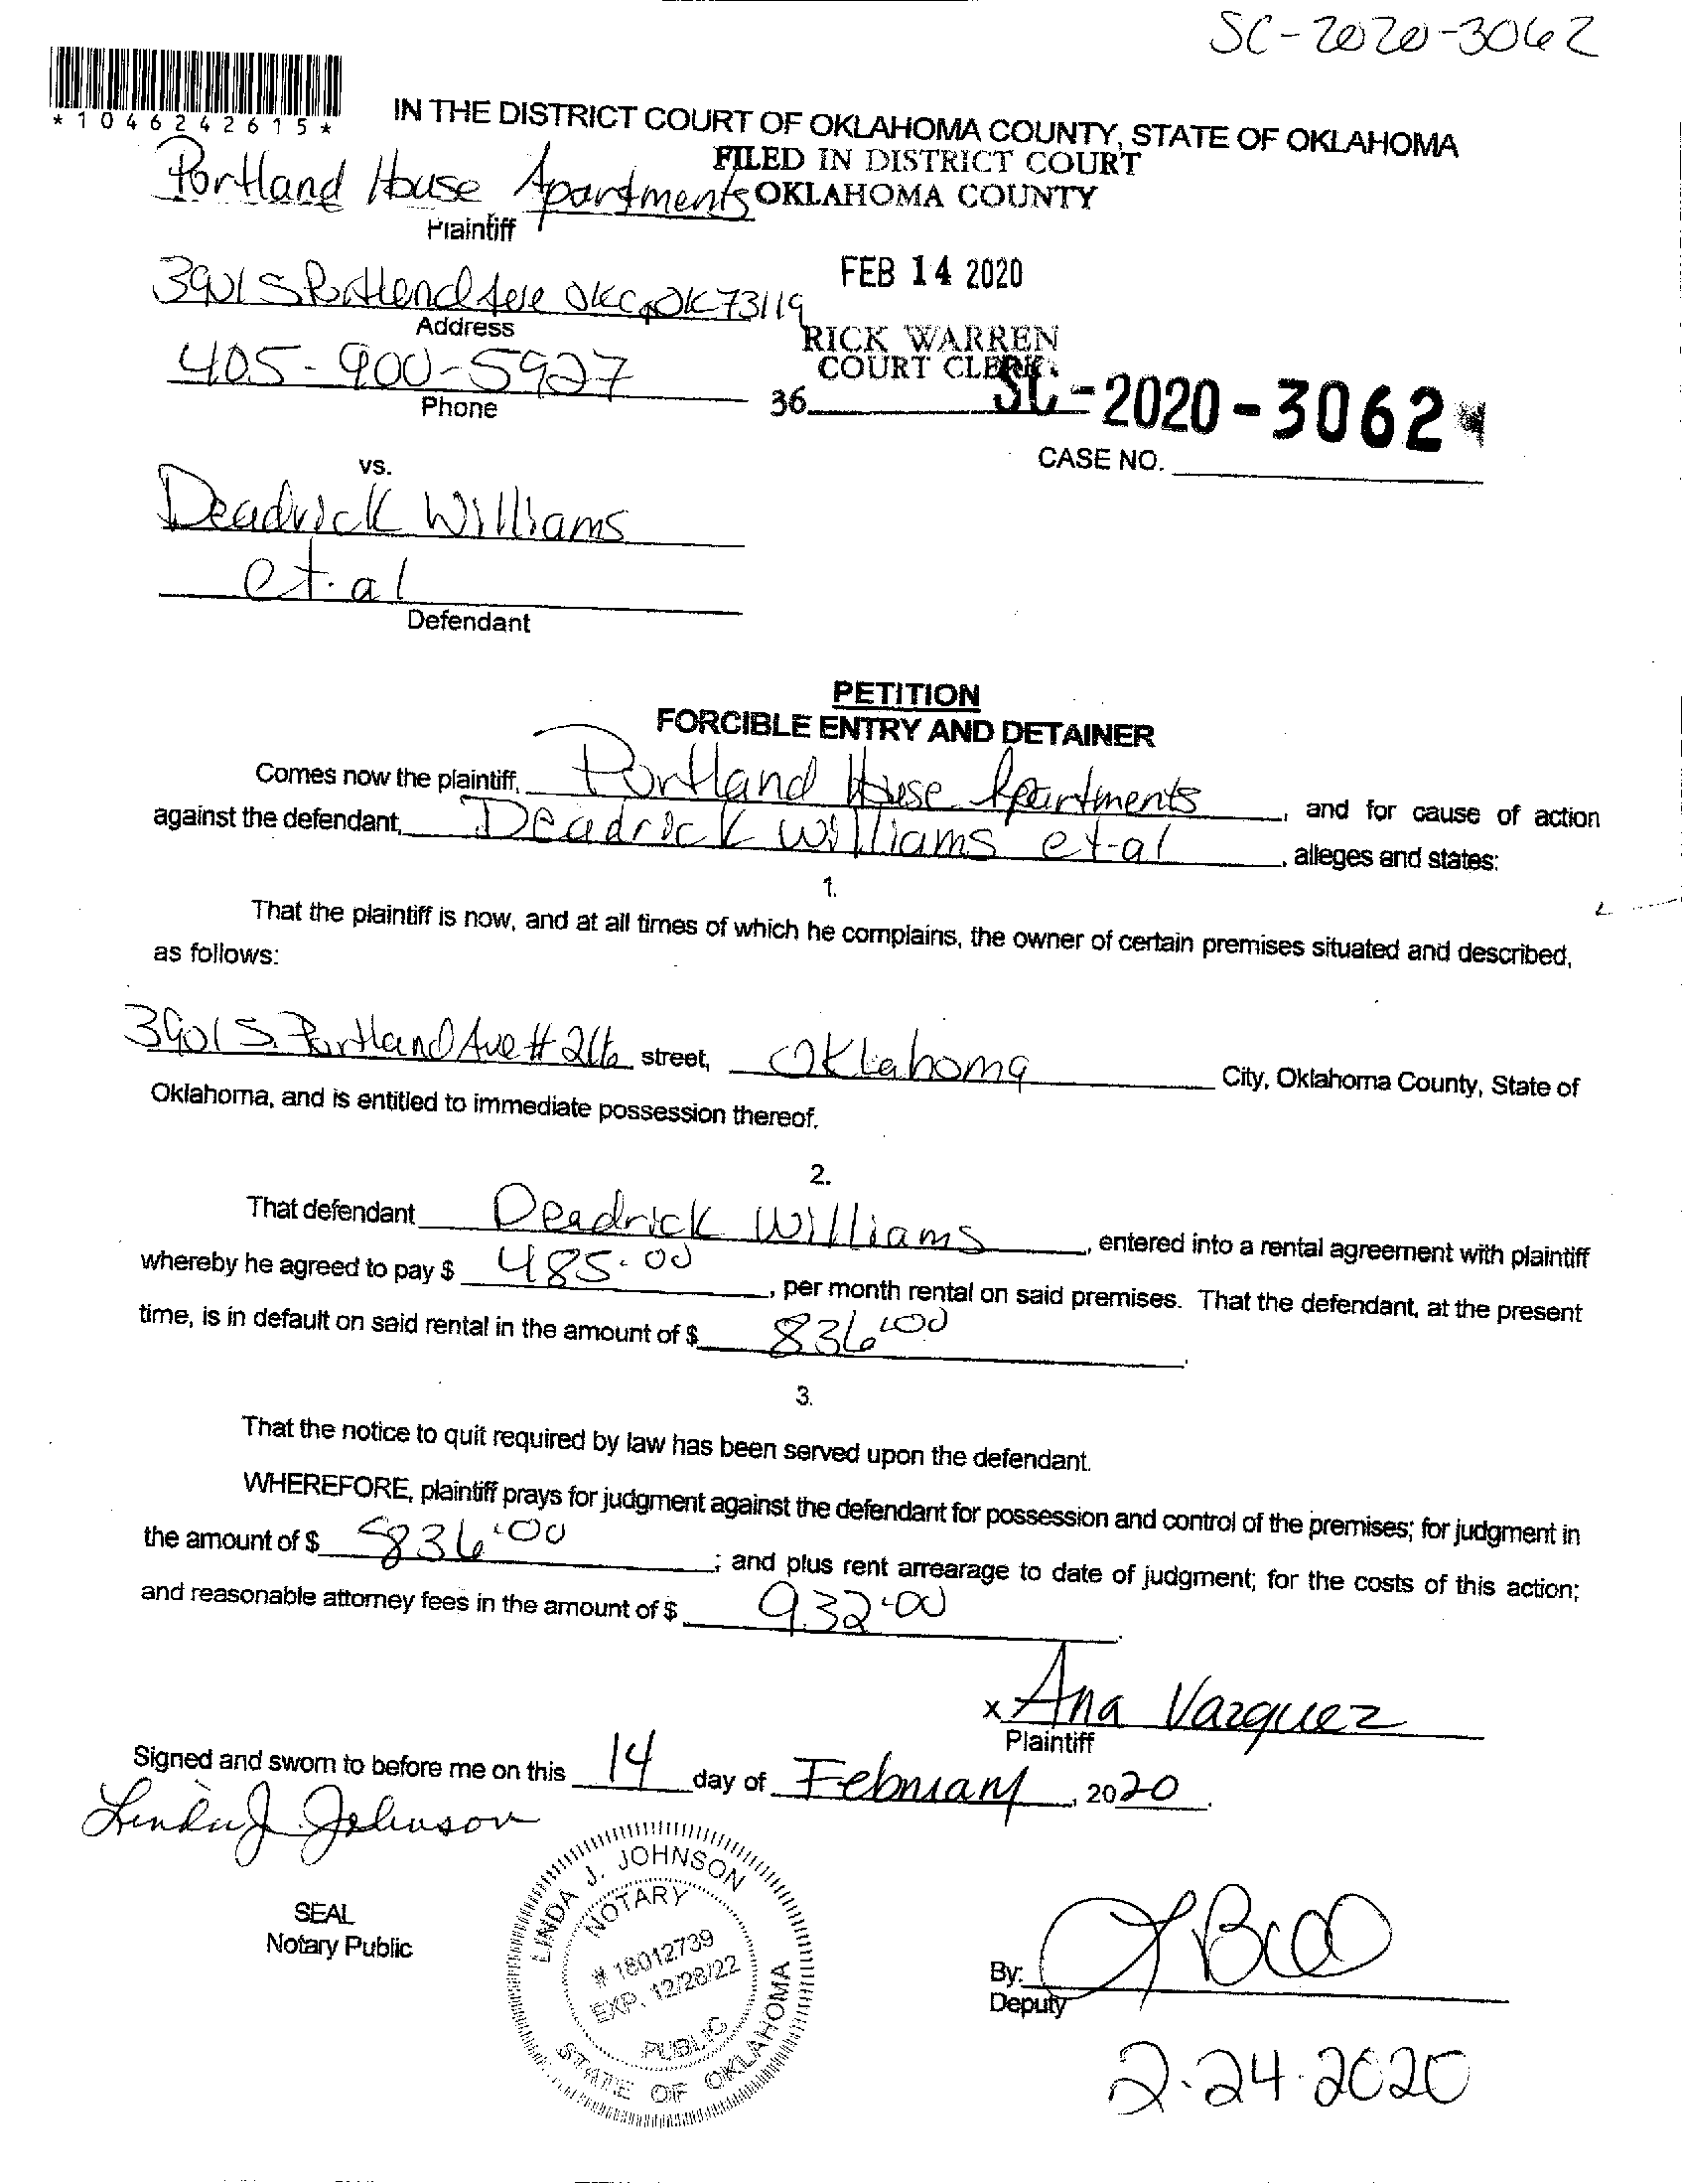 SC-2020-3062
*1046242615*
IN THE DISTRICT COURT OF OKLAHOMA COUNTY, STATE OF OKLAHOMA
FILED IN DISTRICT COURT
Portland House Apartments OKLAHOMA COUNTY
Plaintiff
FEB 14 2020
3901 S Portland Ave OKC, OK 73119
Address
RICK WARREN
COURT CLERK
405-900-5927
Phone
36
SC-2020-3062
CASE NO.
vs.
Deadrick Williams
et.al
Defendant
PETITION
FORCIBLE ENTRY AND DETAINER
Comes now the plaintiff, Portland House Apartments, and for cause of action
against the defendant, Deadrick Williams et-al, alleges and states:
1.
That the plaintiff is now, and at all times of which he complains, the owner of certain premises situated and described,
as follows:
3901 S. Portland Ave # street, Oklahoma City, Oklahoma County, State of
Oklahoma, and is entitled to immediate possession thereof.
2.
That defendant Deadrick Williams, entered into a rental agreement with plaintiff
whereby he agreed to pay $ 485.00, per month rental on said premises. That the defendant, at the present
time, is in default on said rental in the amount of $ 836.00.
3.
That the notice to quit required by law has been served upon the defendant.
WHEREFORE, plaintiff prays for judgment against the defendant for possession and control of the premises; for judgment in
the amount of $ 836.00; and plus rent arrearage to date of judgment; for the costs of this action;
and reasonable attorney fees in the amount of $ 932.00.
x Ana Vazquez
Plaintiff
Signed and sworn to before me on this 14 day of February, 2020.
Linda J Johnson
LINDA J. JOHNSON
NOTARY
# 18012739
EXP. 12/28/22
PUBLIC
STATE OF OKLAHOMA
SEAL
Notary Public
By:
Deputy
2-24-2020